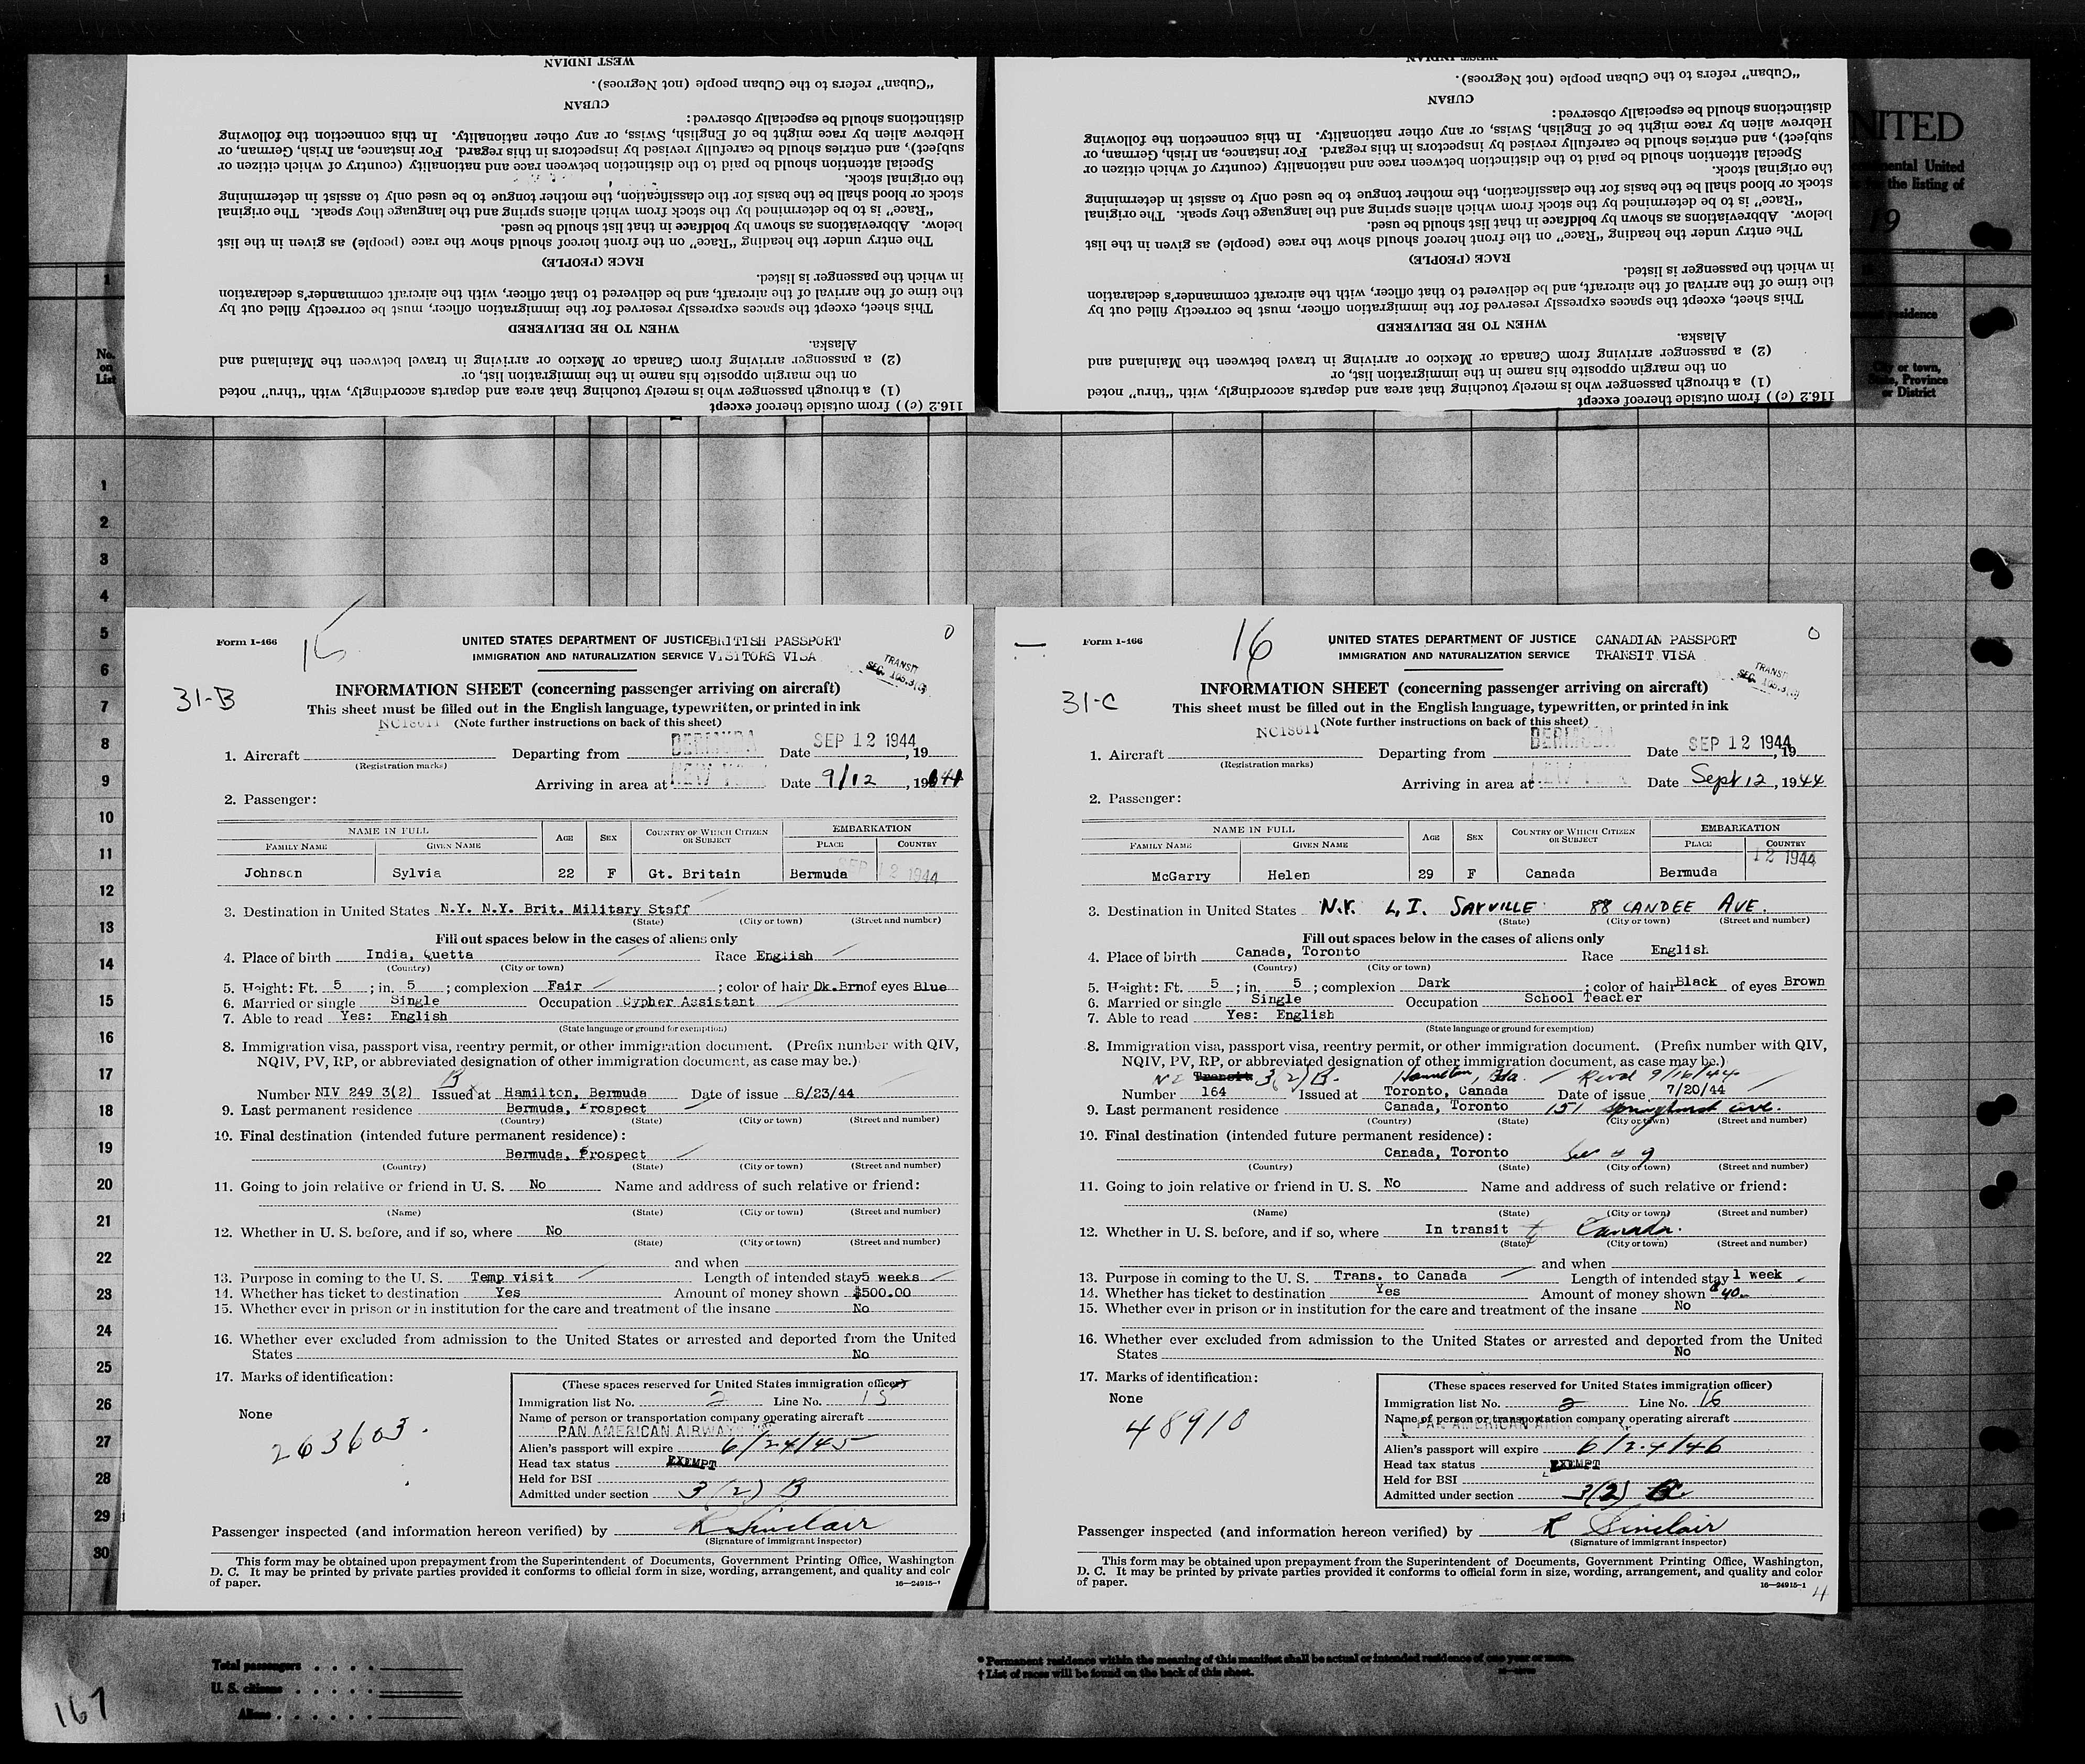 WEST INDIAN
"Cuban" refers to the Cuban people (not Negroes).
CUBAN
distinctions should be especially observed:
Hebrew alien by race might be of English, Swiss, or any other nationality. In this connection the following
subject), and entries should be carefully revised by inspectors in this regard. For instance, an Irish, German, or
Special attention should be paid to the distinction between race and nationality (country of which citizen or
the original stock.
stock or blood shall be the basis for the classification, the mother tongue to be used only to assist in determining
"Race" is to be determined by the stock from which aliens spring and the language they speak. The original
below. Abbreviations as shown by boldface in that list should be used.
The entry under the heading "Race" on the front hereof should show the race (people) as given in the list
RACE (PEOPLE)
in which the passenger is listed.
the time of the arrival of the aircraft, and be delivered to that officer, with the aircraft commander's declaration
This sheet, except the spaces expressly reserved for the immigration officer, must be correctly filled out by
WHEN TO BE DELIVERED
Alaska.
(2) a passenger arriving from Canada or Mexico or arriving in travel between the Mainland and
on the margin opposite his name in the immigration list, or
(1) a through passenger who is merely touching that area and departs accordingly, with "thru" noted
116.2 (c) ) from outside thereof except
WEST INDIAN
"Cuban" refers to the Cuban people (not Negroes).
CUBAN
distinctions should be especially observed:
Hebrew alien by race might be of English, Swiss, or any other nationality. In this connection the following
subject), and entries should be carefully revised by inspectors in this regard. For instance, an Irish, German, or
Special attention should be paid to the distinction between race and nationality (country of which citizen or
the original stock.
stock or blood shall be the basis for the classification, the mother tongue to be used only to assist in determining
"Race" is to be determined by the stock from which aliens spring and the language they speak. The original
below. Abbreviations as shown by boldface in that list should be used.
The entry under the heading "Race" on the front hereof should show the race (people) as given in the list
RACE (PEOPLE)
in which the passenger is listed.
the time of the arrival of the aircraft, and be delivered to that officer, with the aircraft commander's declaration
This sheet, except the spaces expressly reserved for the immigration officer, must be correctly filled out by
WHEN TO BE DELIVERED
Alaska.
(2) a passenger arriving from Canada or Mexico or arriving in travel between the Mainland and
on the margin opposite his name in the immigration list, or
(1) a through passenger who is merely touching that area and departs accordingly, with "thru" noted
116.2 (c) ) from outside thereof except
NITED
United
the listing of
19
residence
City or town,
State, Province
or District
1
No.
on
List
1
2
3
4
5
6
7
8
9
10
11
12
13
14
15
16
17
18
19
20
21
22
23
24
25
26
27
28
29
30
Form I-466
15
UNITED STATES DEPARTMENT OF JUSTICE BRITISH PASSPORT
IMMIGRATION AND NATURALIZATION SERVICE VISITORS VISA
0
TRANSIT
SEC. 105.3(3)
31-B
INFORMATION SHEET (concerning passenger arriving on aircraft)
This sheet must be filled out in the English language, typewritten, or printed in ink
NC18611 (Note further instructions on back of this sheet)
1. Aircraft Departing from BERMUDA Date SEP 12 1944, 19
(Registration marks)
Arriving in area at NEW YORK Date 9/12, 1944
2. Passenger:
NAME IN FULL AGE SEX COUNTRY OF WHICH CITIZEN OR SUBJECT EMBARKATION
FAMILY NAME GIVEN NAME PLACE COUNTRY
Johnson Sylvia 22 F Gt. Britain Bermuda SEP 12 1944
3. Destination in United States N.Y. N.Y. Brit. Military Staff
(State) (City or town) (Street and number)
Fill out spaces below in the cases of aliens only
4. Place of birth India, Quetta Race English
(Country) (City or town)
5. Height: Ft. 5 ; in. 5 ; complexion Fair ; color of hair Dk.Brn of eyes Blue
6. Married or single Single Occupation Cypher Assistant
7. Able to read Yes: English
(State language or ground for exemption)
8. Immigration visa, passport visa, reentry permit, or other immigration document. (Prefix number with QIV,
NQIV, PV, RP, or abbreviated designation of other immigration document, as case may be.)
B
Number NIV 249 3(2) Issued at Hamilton, Bermuda Date of issue 8/23/44
9. Last permanent residence Bermuda, Prospect
(Country) (State) (City or town) (Street and number)
10. Final destination (intended future permanent residence):
Bermuda, Prospect
(Country) (State) (City or town) (Street and number)
11. Going to join relative or friend in U. S. No Name and address of such relative or friend:
(Name) (State) (City or town) (Street and number)
12. Whether in U. S. before, and if so, where No
(State) (City or town) (Street and number)
and when
13. Purpose in coming to the U. S. Temp visit Length of intended stay 5 weeks
14. Whether has ticket to destination Yes Amount of money shown $500.00
15. Whether ever in prison or in institution for the care and treatment of the insane No
16. Whether ever excluded from admission to the United States or arrested and deported from the United
States No
17. Marks of identification:
None
263603.
(These spaces reserved for United States immigration officer)
Immigration list No. 2 Line No. 15
Name of person or transportation company operating aircraft
PAN AMERICAN AIRWAYS
Alien's passport will expire 6/24/45
Head tax status EXEMPT
Held for BSI
Admitted under section 3(2) B
Passenger inspected (and information hereon verified) by R Sinclair
(Signature of immigrant inspector)
This form may be obtained upon prepayment from the Superintendent of Documents, Government Printing Office, Washington
D. C. It may be printed by private parties provided it conforms to official form in size, wording, arrangement, and quality and colo
of paper.
16—24915-1
Form I-466
16
UNITED STATES DEPARTMENT OF JUSTICE CANADIAN PASSPORT
IMMIGRATION AND NATURALIZATION SERVICE TRANSIT VISA
0
TRANSIT
SEC. 105.3(3)
31-C
INFORMATION SHEET (concerning passenger arriving on aircraft)
This sheet must be filled out in the English language, typewritten, or printed in ink
NC18611 (Note further instructions on back of this sheet)
1. Aircraft Departing from BERMUDA Date SEP 12 1944, 19
(Registration marks)
Arriving in area at NEW YORK Date Sept 12, 1944
2. Passenger:
NAME IN FULL AGE SEX COUNTRY OF WHICH CITIZEN OR SUBJECT EMBARKATION
FAMILY NAME GIVEN NAME PLACE COUNTRY
McGarry Helen 29 F Canada Bermuda 12 1944
3. Destination in United States N.Y. L.I. SAYVILLE 88 CANDEE AVE.
(State) (City or town) (Street and number)
Fill out spaces below in the cases of aliens only
4. Place of birth Canada, Toronto Race English
(Country) (City or town)
5. Height: Ft. 5 ; in. 5 ; complexion Dark ; color of hair Black of eyes Brown
6. Married or single Single Occupation School Teacher
7. Able to read Yes: English
(State language or ground for exemption)
8. Immigration visa, passport visa, reentry permit, or other immigration document. (Prefix number with QIV,
NQIV, PV, RP, or abbreviated designation of other immigration document, as case may be.)
Transit 3(2) B. Hamilton, Bda. 9/6/44
Number 164 Issued at Toronto, Canada Date of issue 7/20/44
9. Last permanent residence Canada, Toronto 151 Springhurst ave.
(Country) (State) (City or town) (Street and number)
10. Final destination (intended future permanent residence):
Canada, Toronto See # 9
(Country) (State) (City or town) (Street and number)
11. Going to join relative or friend in U. S. No Name and address of such relative or friend:
(Name) (State) (City or town) (Street and number)
12. Whether in U. S. before, and if so, where In transit to Canada.
(State) (City or town) (Street and number)
and when
13. Purpose in coming to the U. S. Trans. to Canada Length of intended stay 1 week
14. Whether has ticket to destination Yes Amount of money shown $40.
15. Whether ever in prison or in institution for the care and treatment of the insane No
16. Whether ever excluded from admission to the United States or arrested and deported from the United
States No
17. Marks of identification:
None
48910
(These spaces reserved for United States immigration officer)
Immigration list No. 2 Line No. 16
Name of person or transportation company operating aircraft
PAN AMERICAN AIRWAYS
Alien's passport will expire 6/24/46
Head tax status EXEMPT
Held for BSI
Admitted under section 3(2) B
Passenger inspected (and information hereon verified) by R Sinclair
(Signature of immigrant inspector)
This form may be obtained upon prepayment from the Superintendent of Documents, Government Printing Office, Washington,
D. C. It may be printed by private parties provided it conforms to official form in size, wording, arrangement, and quality and color
of paper.
16—24915-1
4
Total passengers
U. S. citizens
Aliens
* Permanent residence within the meaning of this manifest shall be actual or intended residence of one year or more.
† List of races will be found on the back of this sheet.
167